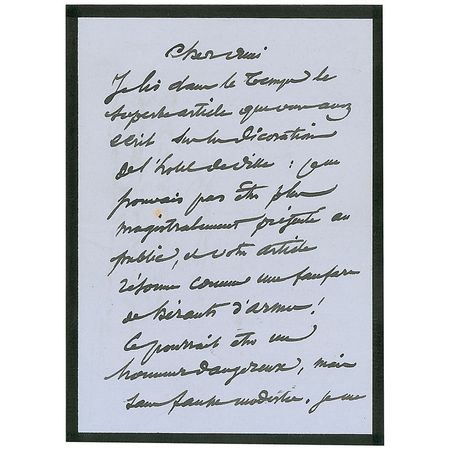 Cher ami
Je lis dans le Temps le
superbe article que vous avez
écrit sur la décoration
de l'hotel de ville : je ne
pouvais pas être plus
magistralement présenté au
public, et votre article
résonne comme une fanfare
de hérauts d'armes !
Ce pourrait être un
honneur dangereux, mais
sans fausse modestie, je me